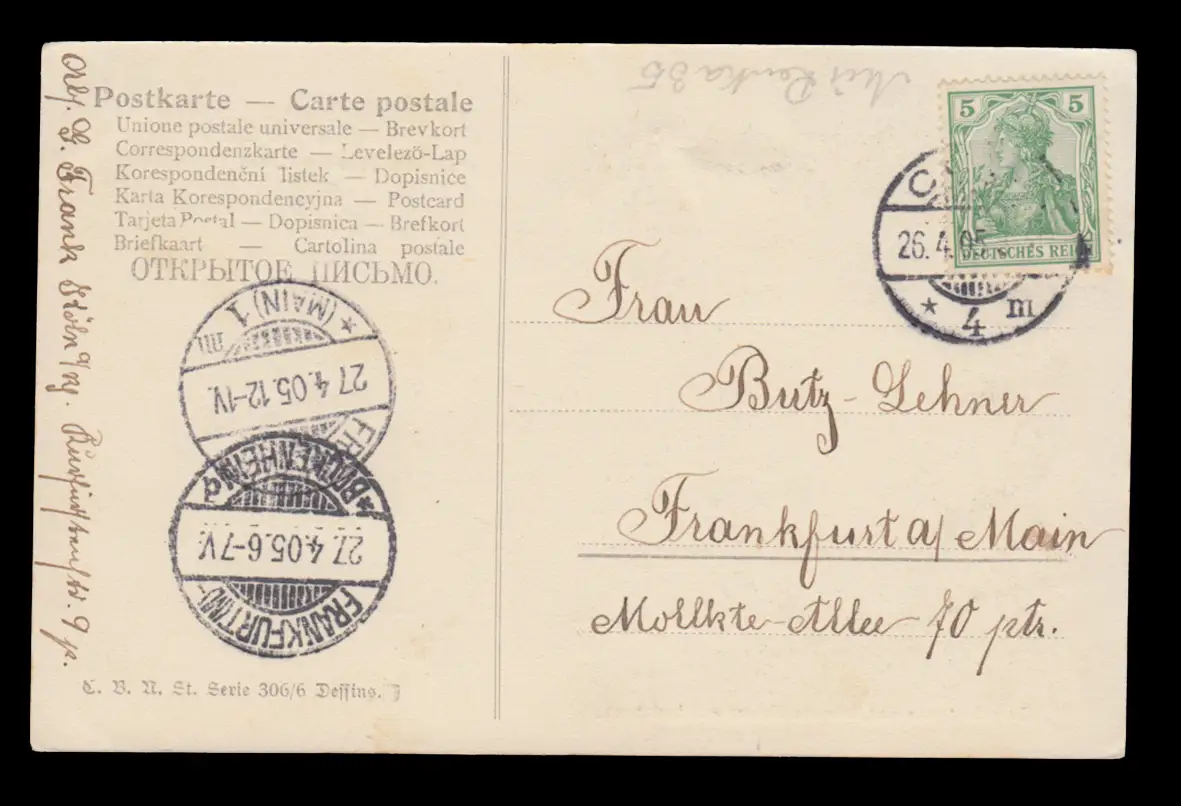 Postkarte — Carte postale
Unione postale universale — Brevkort
Correspondenzkarte — Levelezö-Lap
Korespondenční listek — Dopisnice
Karta Korespondencyjna — Postcard
Tarjeta Postal — Dopisnica — Brefkort
Briefkaart — Cartolina postale
ОТКРЫТОЕ ПИСЬМО.
5 5
DEUTSCHES REICH
C
26.4.05
* 4 m
Frau
Butz-Lehner
Frankfurt a/ Main
Moltkte-Allee 70 ptr.
* (MAIN) 1 m
27 4.05.12-1V.
FR
* BOCKENHEIM d
27.4.05.6-7V.
FRANKFURT (M)-
Abs. G. Frank Köln a/Rh. Kurfürstenstr. 9 p.
C. B. N. St. Serie 306/6 Dessins.